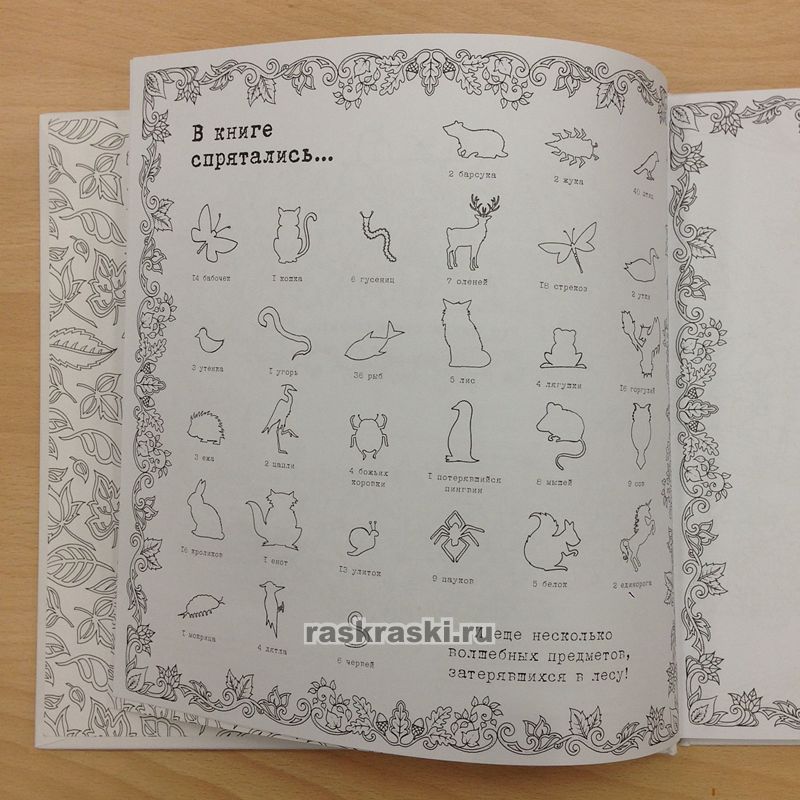 В книге
спрятались...
2 барсука
2 жука
40 птиц
14 бабочек
1 кошка
6 гусениц
7 оленей
18 стрекоз
2 утки
3 утенка
1 угорь
36 рыб
5 лис
4 лягушки
16 горгулий
3 ежа
2 цапли
4 божьих
коровки
1 потерявшийся
пингвин
8 мышей
9 сов
16 кроликов
1 енот
13 улиток
9 пауков
5 белок
2 единорога
1 мокрица
4 дятла
6 червей
raskraski.ru
И еще несколько
волшебных предметов,
затерявшихся в лесу!